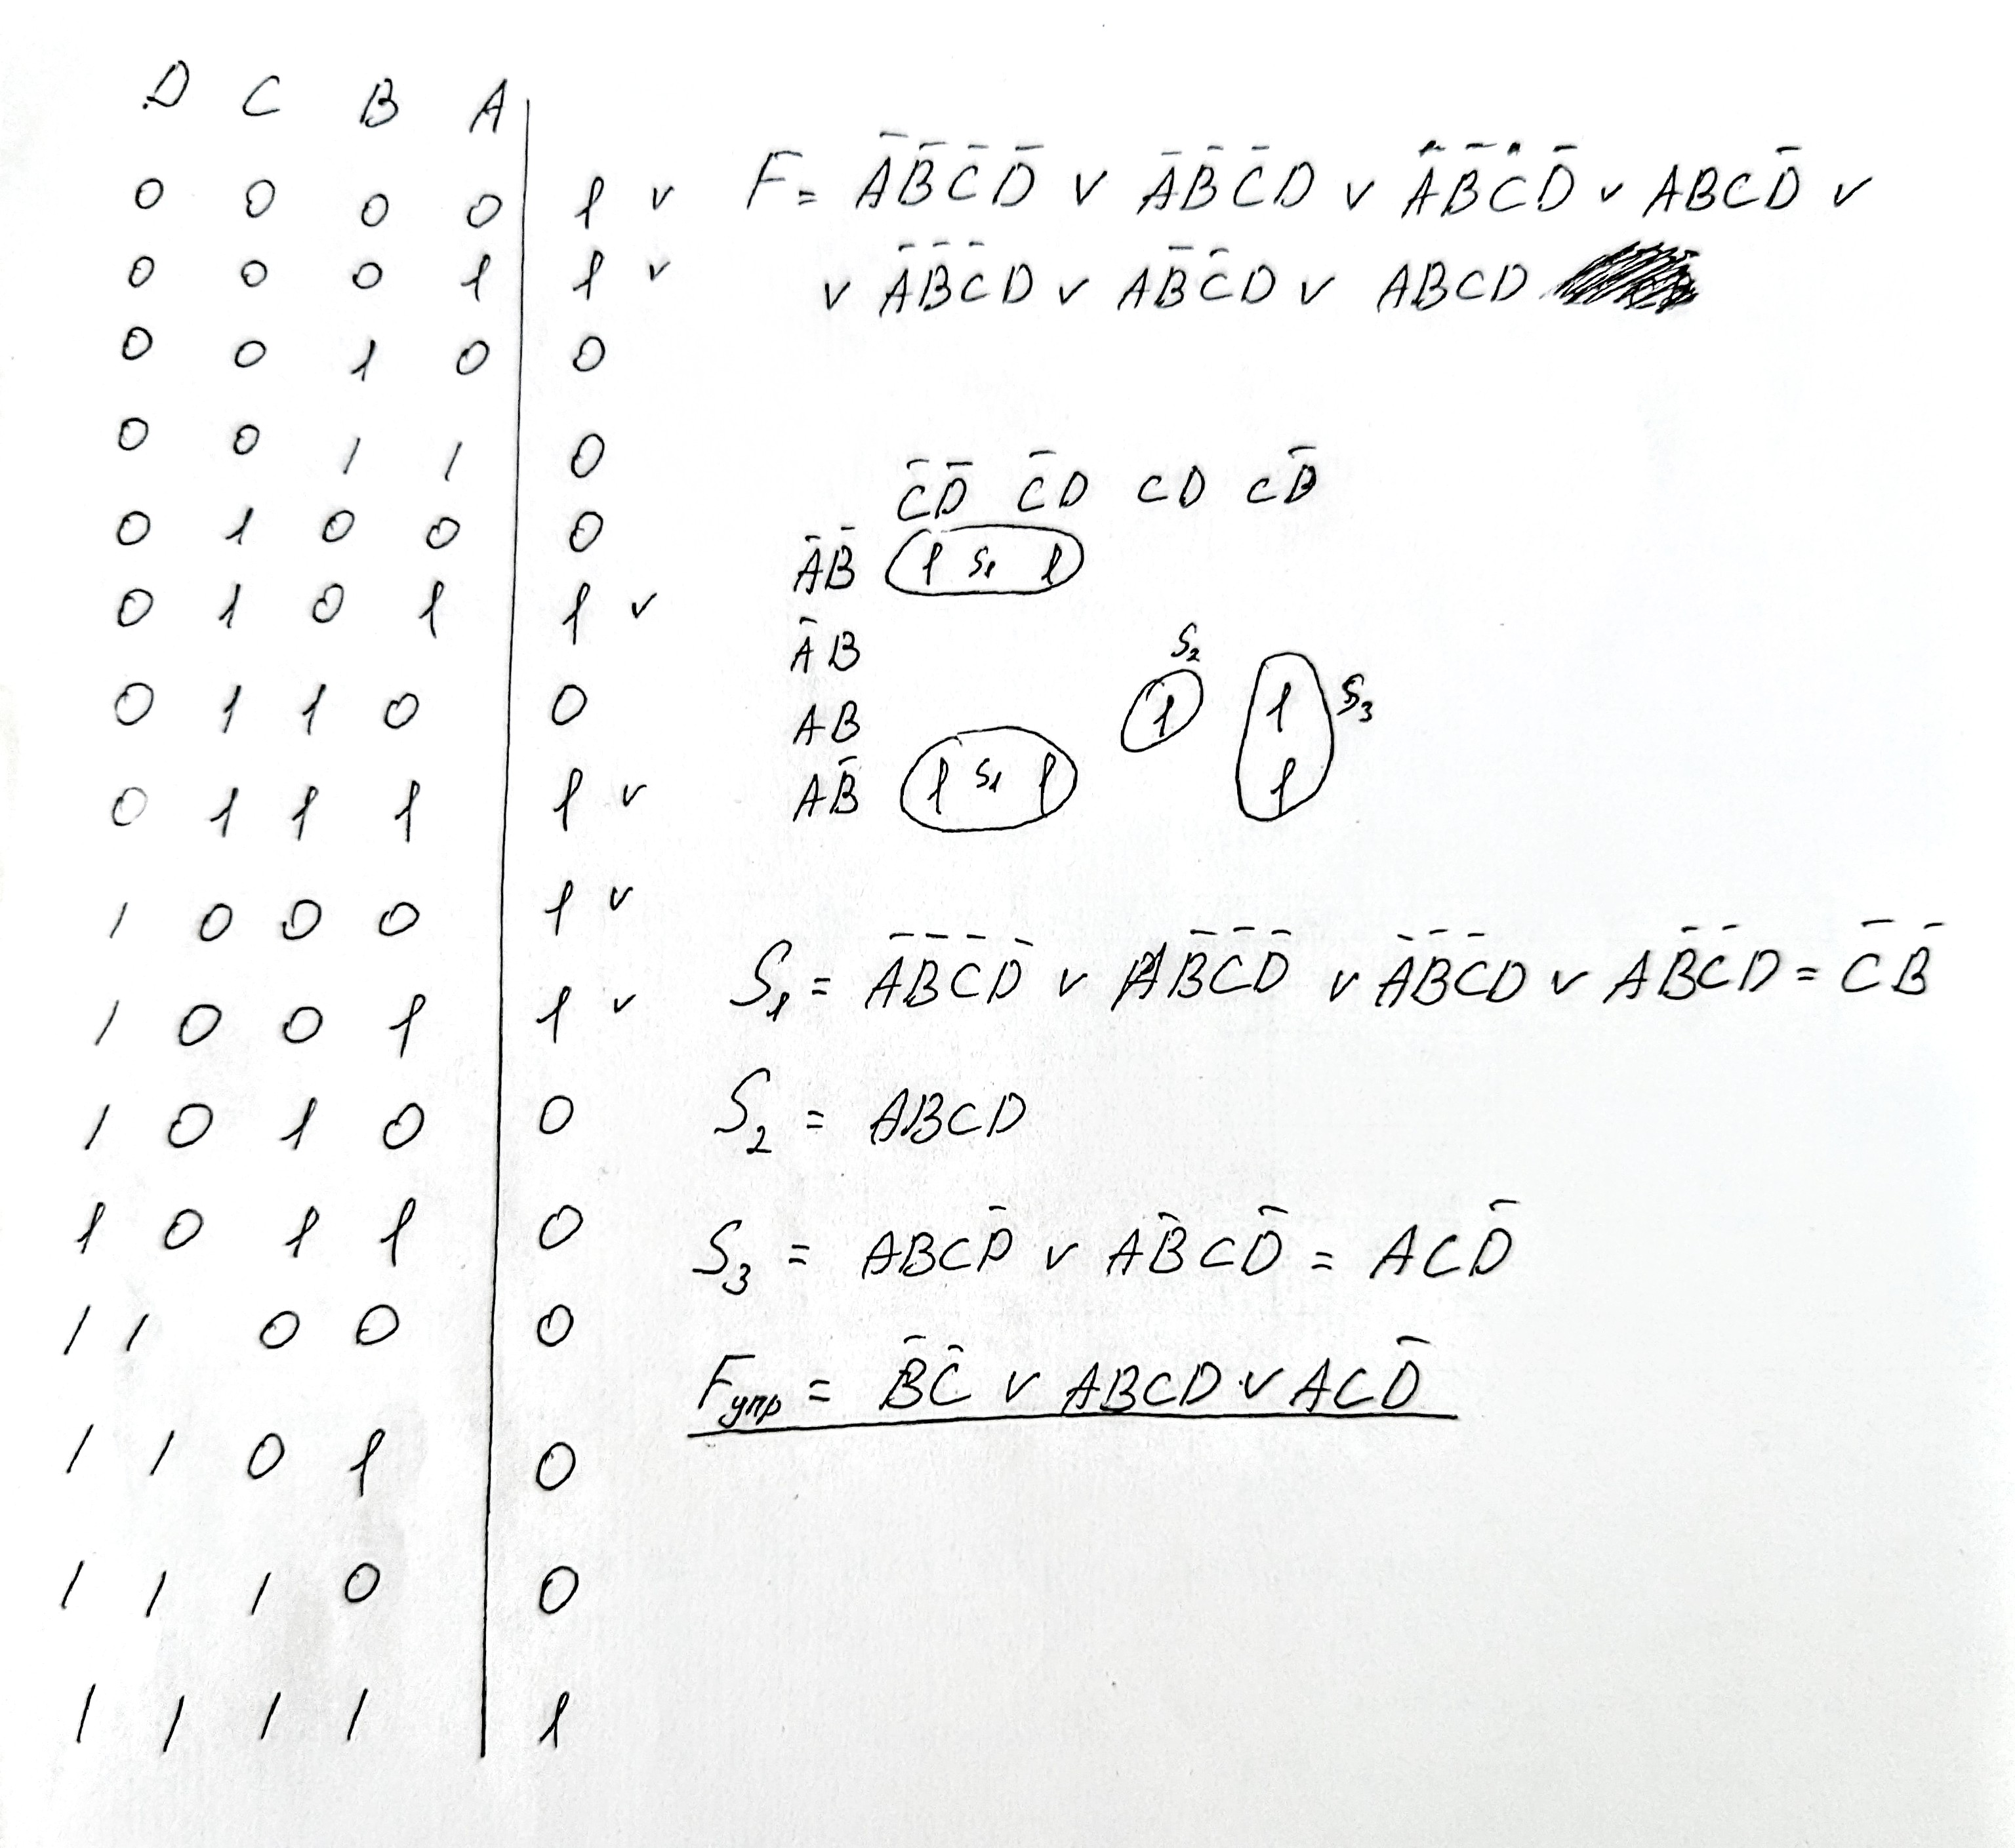 D C B A
0 0 0 0 | 1 v
0 0 0 1 | 1 v
0 0 1 0 | 0
0 0 1 1 | 0
0 1 0 0 | 0
0 1 0 1 | 1 v
0 1 1 0 | 0
0 1 1 1 | 1 v
1 0 0 0 | 1 v
1 0 0 1 | 1 v
1 0 1 0 | 0
1 0 1 1 | 0
1 1 0 0 | 0
1 1 0 1 | 0
1 1 1 0 | 0
1 1 1 1 | 1
F = A̅B̅C̅D̅ v A̅B̅C̅D v A̅B̅C̅D̅ v ABCD̅ v
v A̅B̅C̅D v AB̅C̅D v ABCD
C̅D̅ C̅D CD CD̅
A̅B̅ 1 S₁ 1
A̅B S₂
AB 1 1 S₃
AB̅ 1 S₁ 1 1
S₁ = A̅B̅C̅D̅ v AB̅C̅D̅ v A̅B̅C̅D v AB̅C̅D = C̅B̅
S₂ = ABCD
S₃ = ABCD̅ v AB̅CD̅ = ACD̅
Fупр = B̅C̅ v ABCD v ACD̅